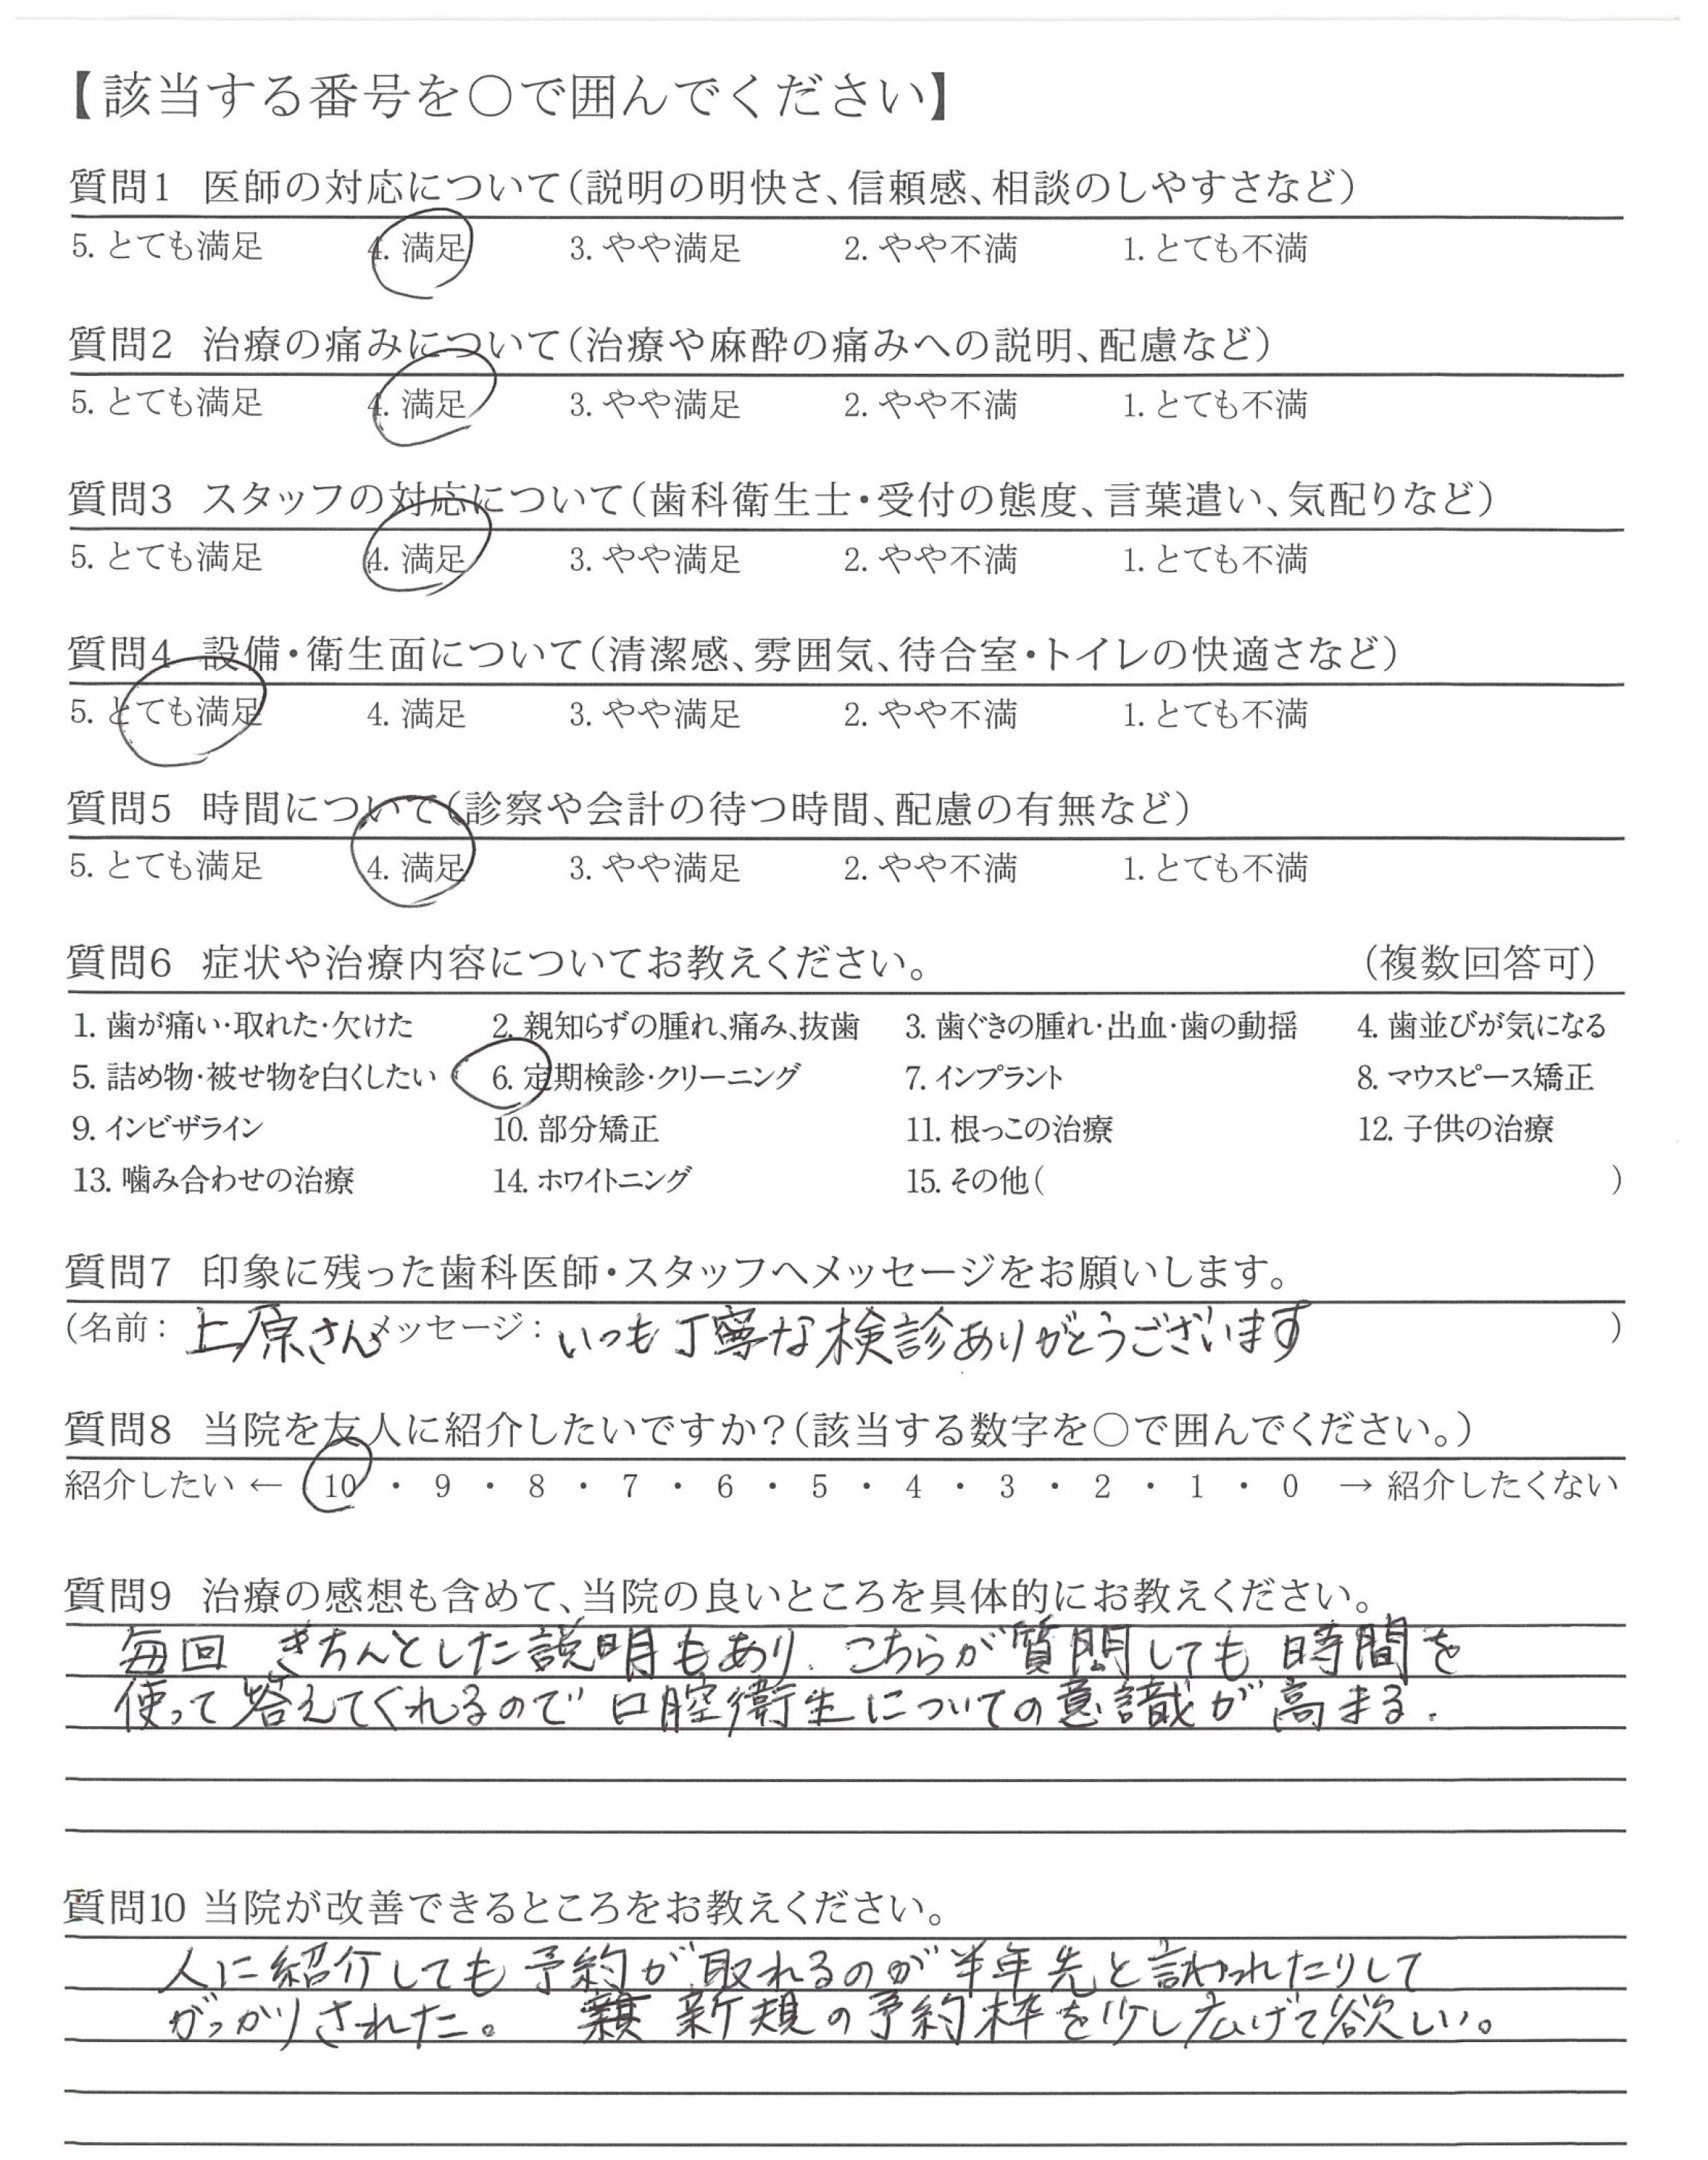 【該当する番号を○で囲んでください】
質問1 医師の対応について（説明の明快さ、信頼感、相談のしやすさなど）
5. とても満足 4. 満足 3. やや満足 2. やや不満 1. とても不満
質問2 治療の痛みについて（治療や麻酔の痛みへの説明、配慮など）
5. とても満足 4. 満足 3. やや満足 2. やや不満 1. とても不満
質問3 スタッフの対応について（歯科衛生士・受付の態度、言葉遣い、気配りなど）
5. とても満足 4. 満足 3. やや満足 2. やや不満 1. とても不満
質問4 設備・衛生面について（清潔感、雰囲気、待合室・トイレの快適さなど）
5. とても満足 4. 満足 3. やや満足 2. やや不満 1. とても不満
質問5 時間について（診察や会計の待つ時間、配慮の有無など）
5. とても満足 4. 満足 3. やや満足 2. やや不満 1. とても不満
質問6 症状や治療内容についてお教えください。 （複数回答可）
1. 歯が痛い・取れた・欠けた 2. 親知らずの腫れ、痛み、抜歯 3. 歯ぐきの腫れ・出血・歯の動揺 4. 歯並びが気になる
5. 詰め物・被せ物を白くしたい 6. 定期検診・クリーニング 7. インプラント 8. マウスピース矯正
9. インビザライン 10. 部分矯正 11. 根っこの治療 12. 子供の治療
13. 噛み合わせの治療 14. ホワイトニング 15. その他（ ）
質問7 印象に残った歯科医師・スタッフへメッセージをお願いします。
（名前： 上原さん メッセージ： いつも丁寧な検診ありがとうございます ）
質問8 当院を友人に紹介したいですか？（該当する数字を○で囲んでください。）
紹介したい ← 10 ・ 9 ・ 8 ・ 7 ・ 6 ・ 5 ・ 4 ・ 3 ・ 2 ・ 1 ・ 0 → 紹介したくない
質問9 治療の感想も含めて、当院の良いところを具体的にお教えください。
毎回 きちんとした説明もあり、こちらが質問しても 時間を
使って答えてくれるので 口腔衛生についての意識が高まる.
質問10 当院が改善できるところをお教えください。
人に紹介しても予約が取れるのが半年先と言われたりして
がっかりされた。 新規の予約枠を少し広げて欲しい。